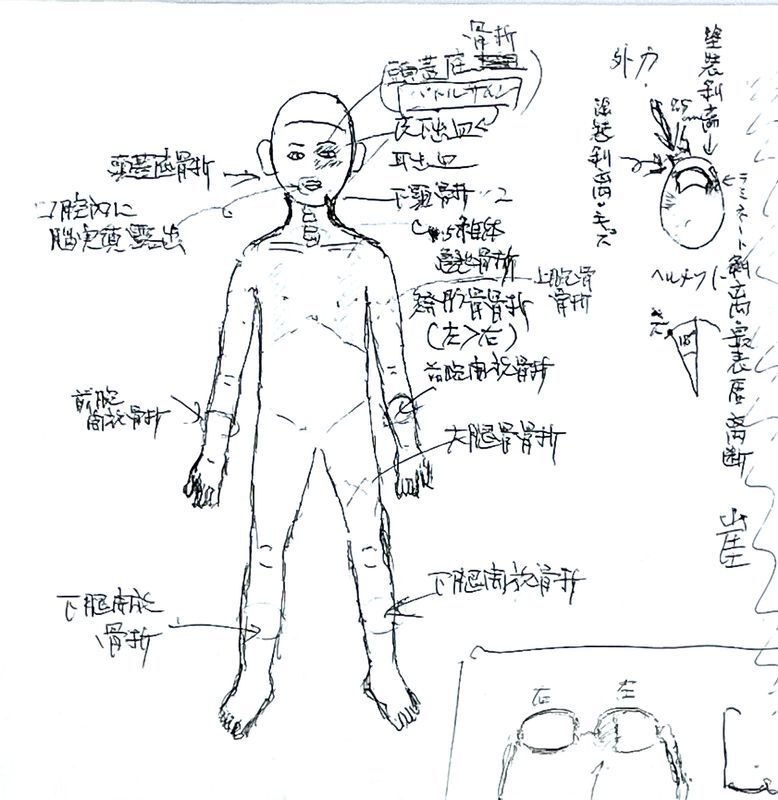 骨折
頭蓋底
バトルサイン
皮下出血
耳出血
下顎骨折
頭蓋底骨折
口腔内に
脳実質露出
上腕骨
骨折
肋骨骨折
(左>右)
前腕開放骨折
前腕
開放骨折
大腿骨骨折
下腿開放骨折
下腿開放
骨折
外力
塗装剥離
塗装剥離・キズ
ヘルメット
ラミネート剥離・最表層離断
右
左